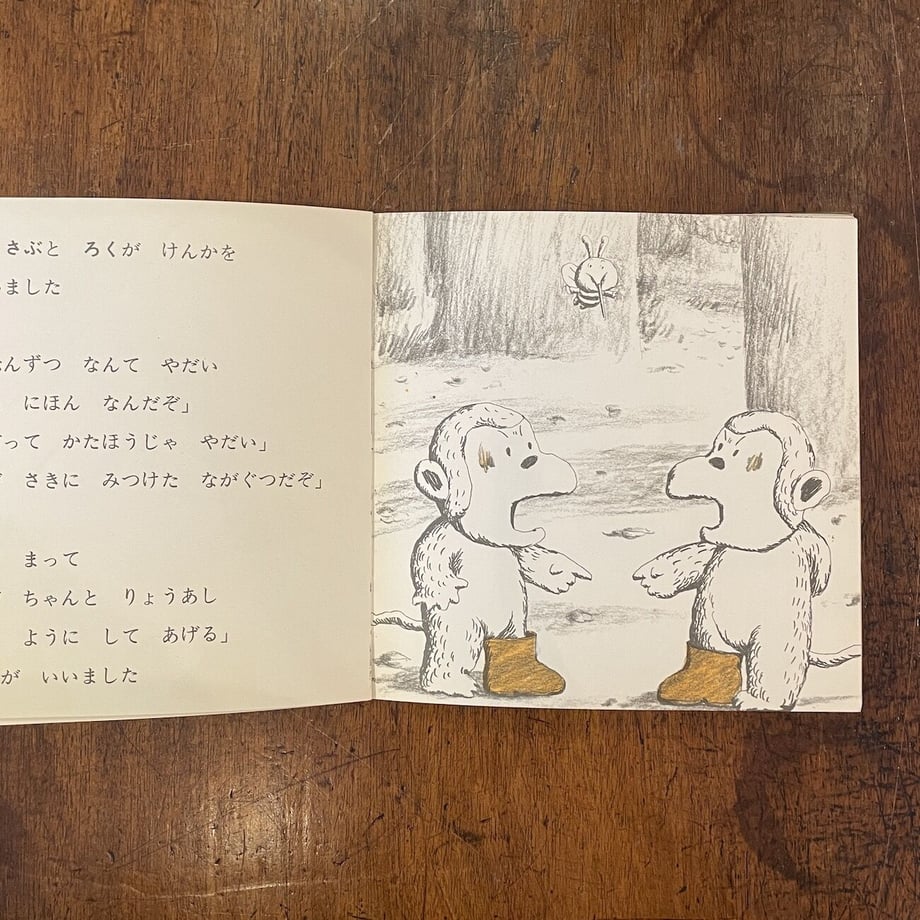 さぶと　ろくが　けんかを
ました
んずつ　なんて　やだい
にほん　なんだぞ」
って　かたほうじゃ　やだい」
さきに　みつけた　ながぐつだぞ」
まって
ちゃんと　りょうあし
ように　して　あげる」
が　いいました